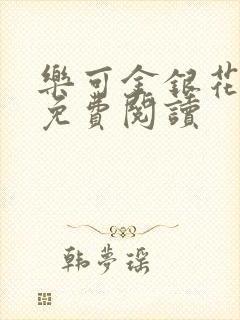 樂可金銀花
免費閱讀
韩夢瑶